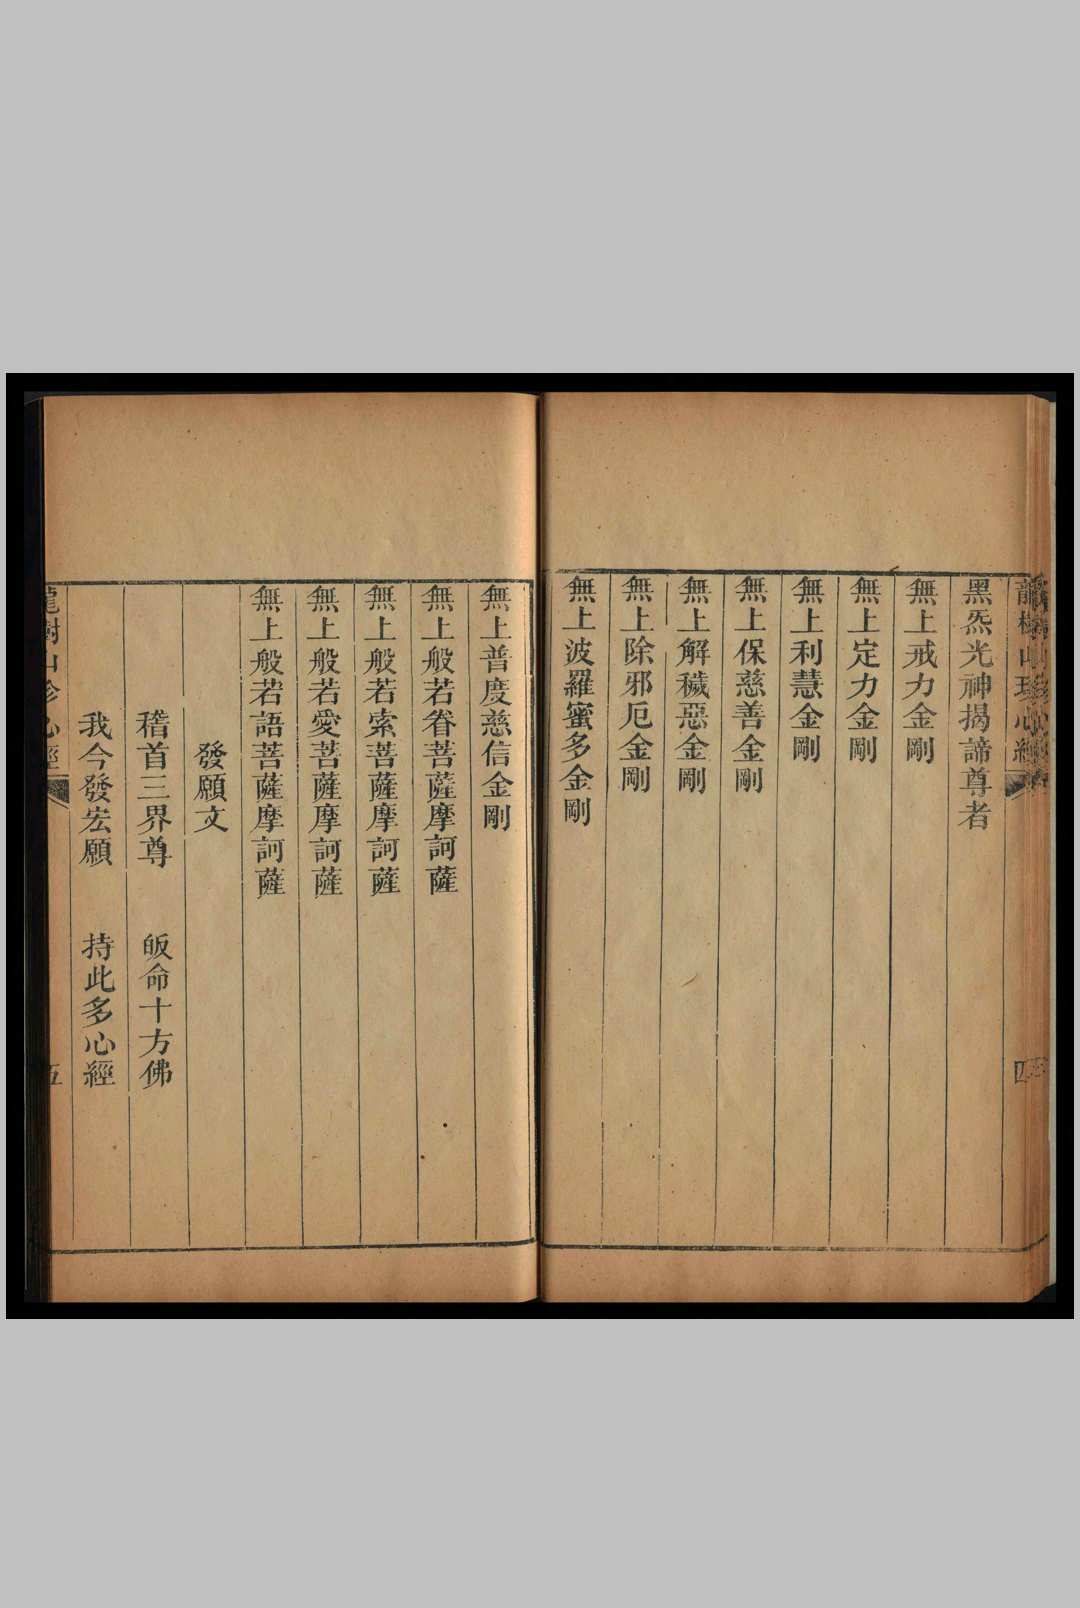 黑炁光神揭諦尊者
無上戒力金剛
無上定力金剛
無上利慧金剛
無上保慈善金剛
無上解穢惡金剛
無上除邪厄金剛
無上波羅蜜多金剛
無上普度慈信金剛
無上般若眷菩薩摩訶薩
無上般若索菩薩摩訶薩
無上般若愛菩薩摩訶薩
無上般若語菩薩摩訶薩
發願文
稽首三界尊　皈命十方佛
我今發宏願　持此多心經
龍樹山珍心經
五